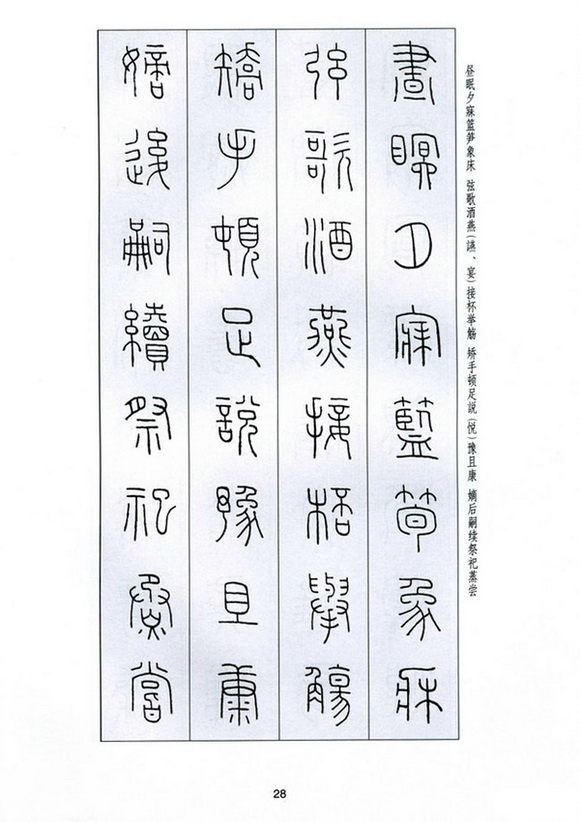 昼眠夕寐篮笋象床 弦歌酒燕(讌、宴)接杯举觞 矫手顿足説(悦)豫且康 嫡后嗣续祭祀蒸尝
晝眠夕寐籃筍象牀
弦歌酒燕接桮舉觴
矯手頓足說豫且康
嫡後嗣續祭祀烝嘗
28